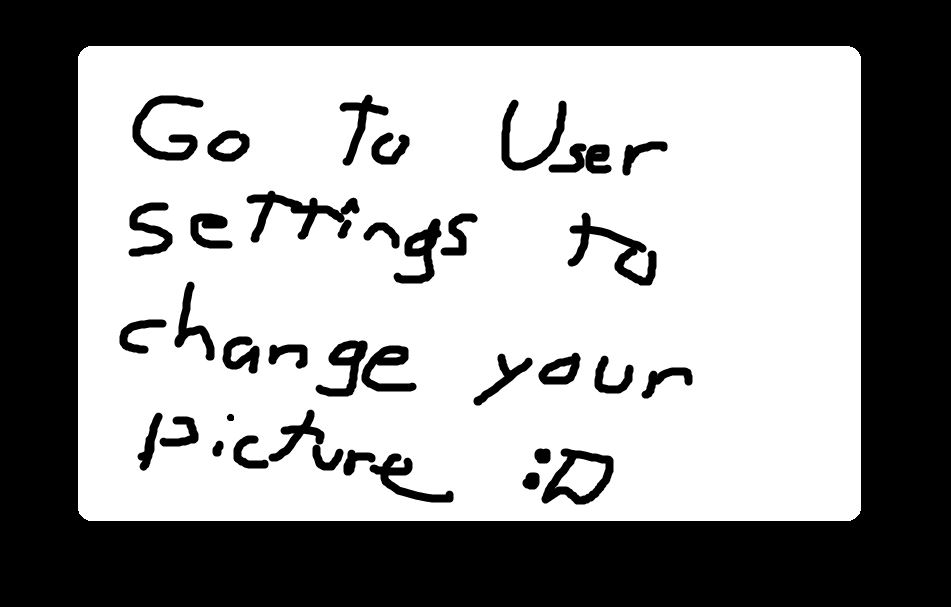 Go To User
settings to
change your
picture :D